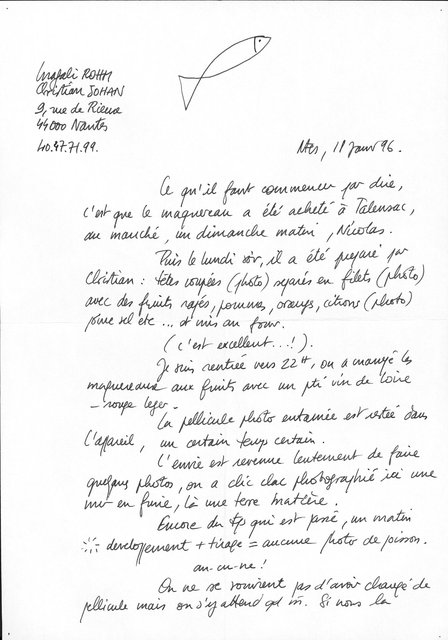 Magali ROHM
Christian JOHAN
9, rue de Rieux
44000 Nantes
40.47.71.99.
Ntes, 18 janv 96.
Ce qu'il faut commencer par dire,
c'est que le maquereau a été acheté à Talensac,
au marché, un dimanche matin, Nicolas.
Puis le lundi soir, il a été préparé par
Christian : têtes coupées (photo) séparés en filets (photo)
avec des fruits rapés, pommes, oranges, citrons (photo)
poivre sel etc ... et mis au four.
(c'est excellent...!).
Je suis rentrée vers 22H, on a mangé les
maquereaux aux fruits avec un pti vin de Loire
- rouge léger -
La pellicule photo entamée est restée dans
l'appareil, un certain temps certain.
L'envie est revenue lentement de faire
quelques photos, on a clic clac photographié ici une
mer en furie, là une terre
Encore du tps qui est passé, un matin
developpement + tirage = aucune photo de poisson.
au-cu-ne !
On ne se souvient pas d'avoir changé de
pellicule mais on s'y attend Si nous la